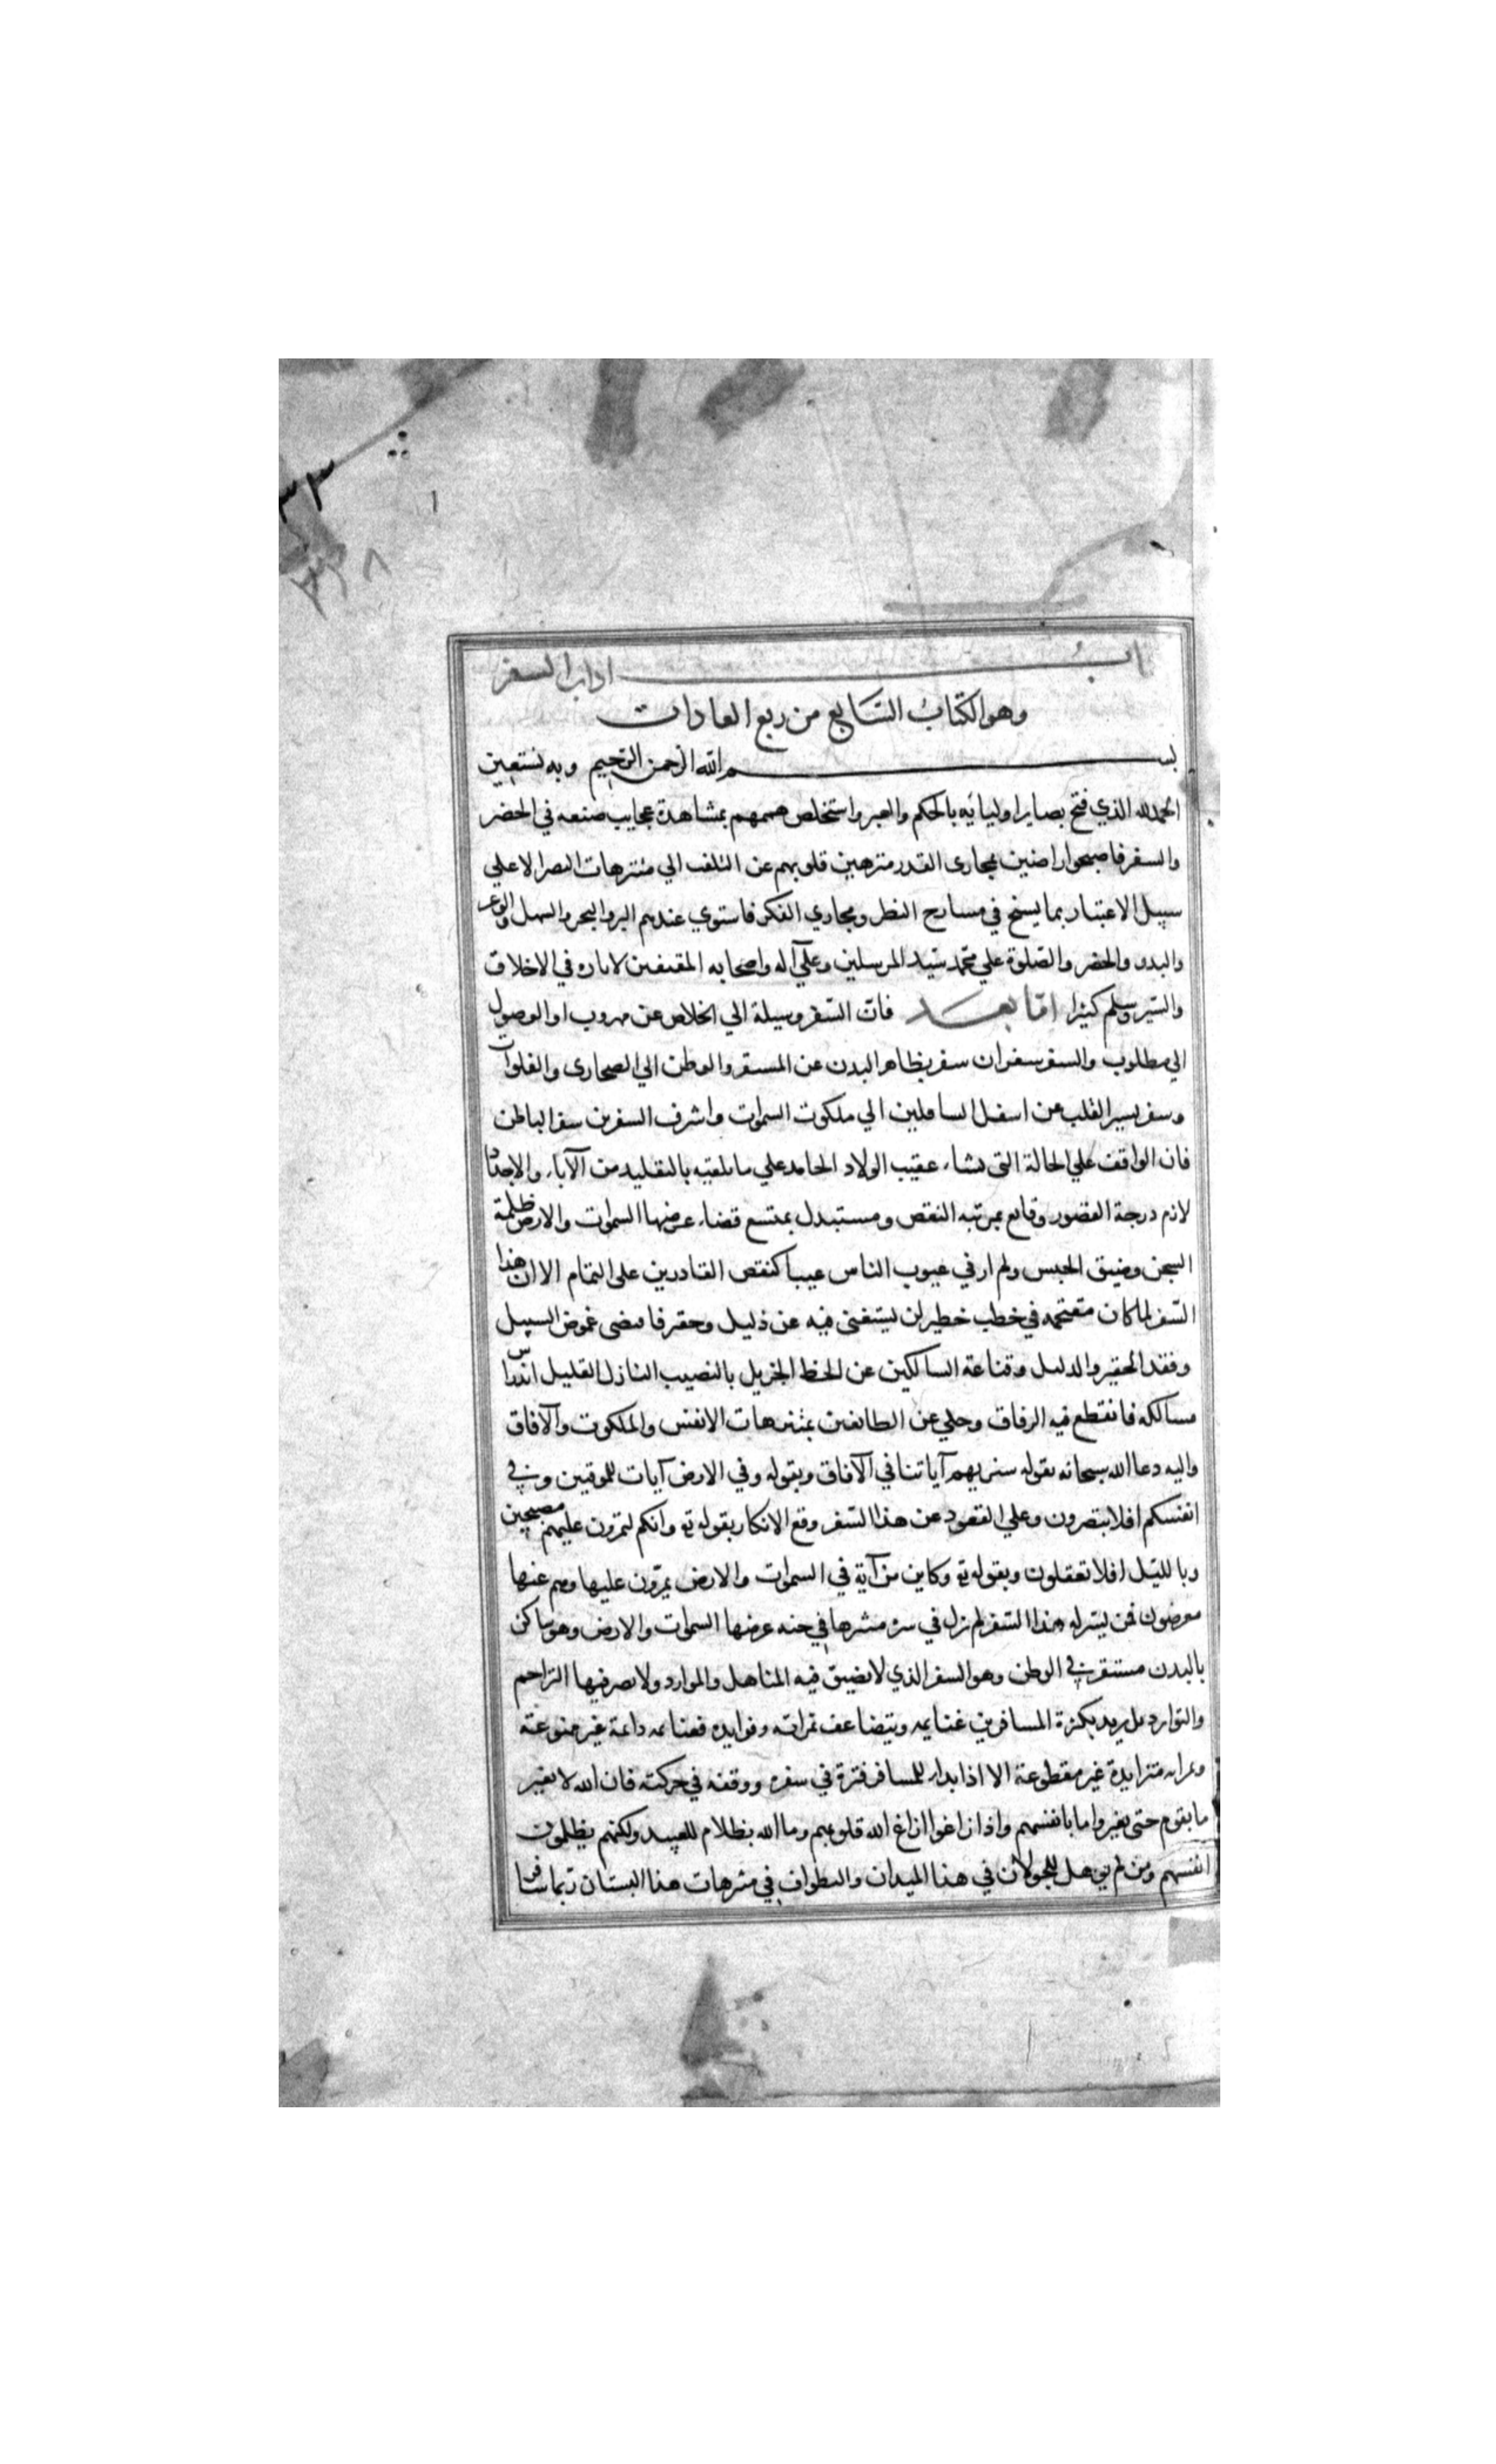 اداب السفر
وهو الكتاب السابع من ربع العادات
بسم الله الرحمن الرحيم وبه نستعين
الحمد لله الذي فتح بصاير اوليائه بالحكم والعبر واستخلص هممهم بمشاهدة عجايب صنعه في الحضر
والسفر فاصبحوا راضين بمجارى القدر منزهين قلوبهم عن التلفت الي منتزهات البصر الا علي
سبيل الاعتبار بما يسنح في مسارح النظر ومجاري الفكر فاستوي عندهم البر والبحر والسهل والوعر
والبدو والحضر والصلوة علي محمد سيد المرسلين وعلي آله واصحابه المقتفين لاثاره في الاخلاق
والسير وسلم كثيرا اما بعد فان السفر وسيلة الي الخلاص عن مهروب او الوصول
الي مطلوب والسفر سفران سفر بظاهر البدن عن المستقر والوطن الي الصحارى والفلوات
وسفر بسير القلب عن اسفل السافلين الي ملكوت السموات واشرف السفرين سفر الباطن
فان الواقف علي الحالة التى نشاء عقيب الولاد الجامد علي ما تلقيه بالتقليد من الآباء والاجداد
لازم درجة القصور وقانع بمرتبة النقص ومستبدل بمتسع قضاء عرضها السموات والارض ظلمة
السجن وضيق الحبس ولم ار في عيوب الناس عيبا كنقص القادرين على التمام الا ان هذا
السفر لما كان مقتحمه في خطب خطير لن يستغنى فيه عن دليل وخفير فاقتضى غموض السبيل
وفقد الخفير والدليل وقناعة السالكين عن الحظ الجزيل بالنصيب النازل القليل اندراس
مسالكه فانقطع فيه الرفاق وخلي عن الطائفين بمتنزهات الانفس والملكوت والآفاق
واليه دعا الله سبحانه بقوله سنريهم آياتنا في الآفاق وبقوله وفي الارض آيات للموقنين وفي
انفسكم افلا تبصرون وعلي القعود عن هذا السفر وقع الانكار بقوله ته وانكم لتمرون عليهم مصبحين
وبالليل افلا تعقلون وبقوله ته وكاين من آية في السموات والارض يمرون عليها وهم عنها
معرضون فمن يسر له هذا السفر لم يزل في سره متنزها في جنه عرضها السموات والارض وهو ساكن
بالبدن مستقر في الوطن وهو السفر الذي لا تضيق فيه المناهل والموارد ولا يضر فيها التزاحم
والتوارد بل يزيد بكثرة المسافرين غنايمه ويتضاعف ثمراته وفوايده فغنايمه دائمة غير ممنوعة
وثمراته متزايدة غير مقطوعة الا اذا بدا للمسافر فترة في سفره ووقفه في حركته فان الله لا يغير
ما بقوم حتى يغيروا ما بانفسهم واذا زاغوا ازاغ الله قلوبهم وما الله بظلام للعبيد ولكنهم يظلمون
انفسهم ومن لم يؤهل للجولان في هذا الميدان والتطواف في متنزهات هذا البستان ربما سافر